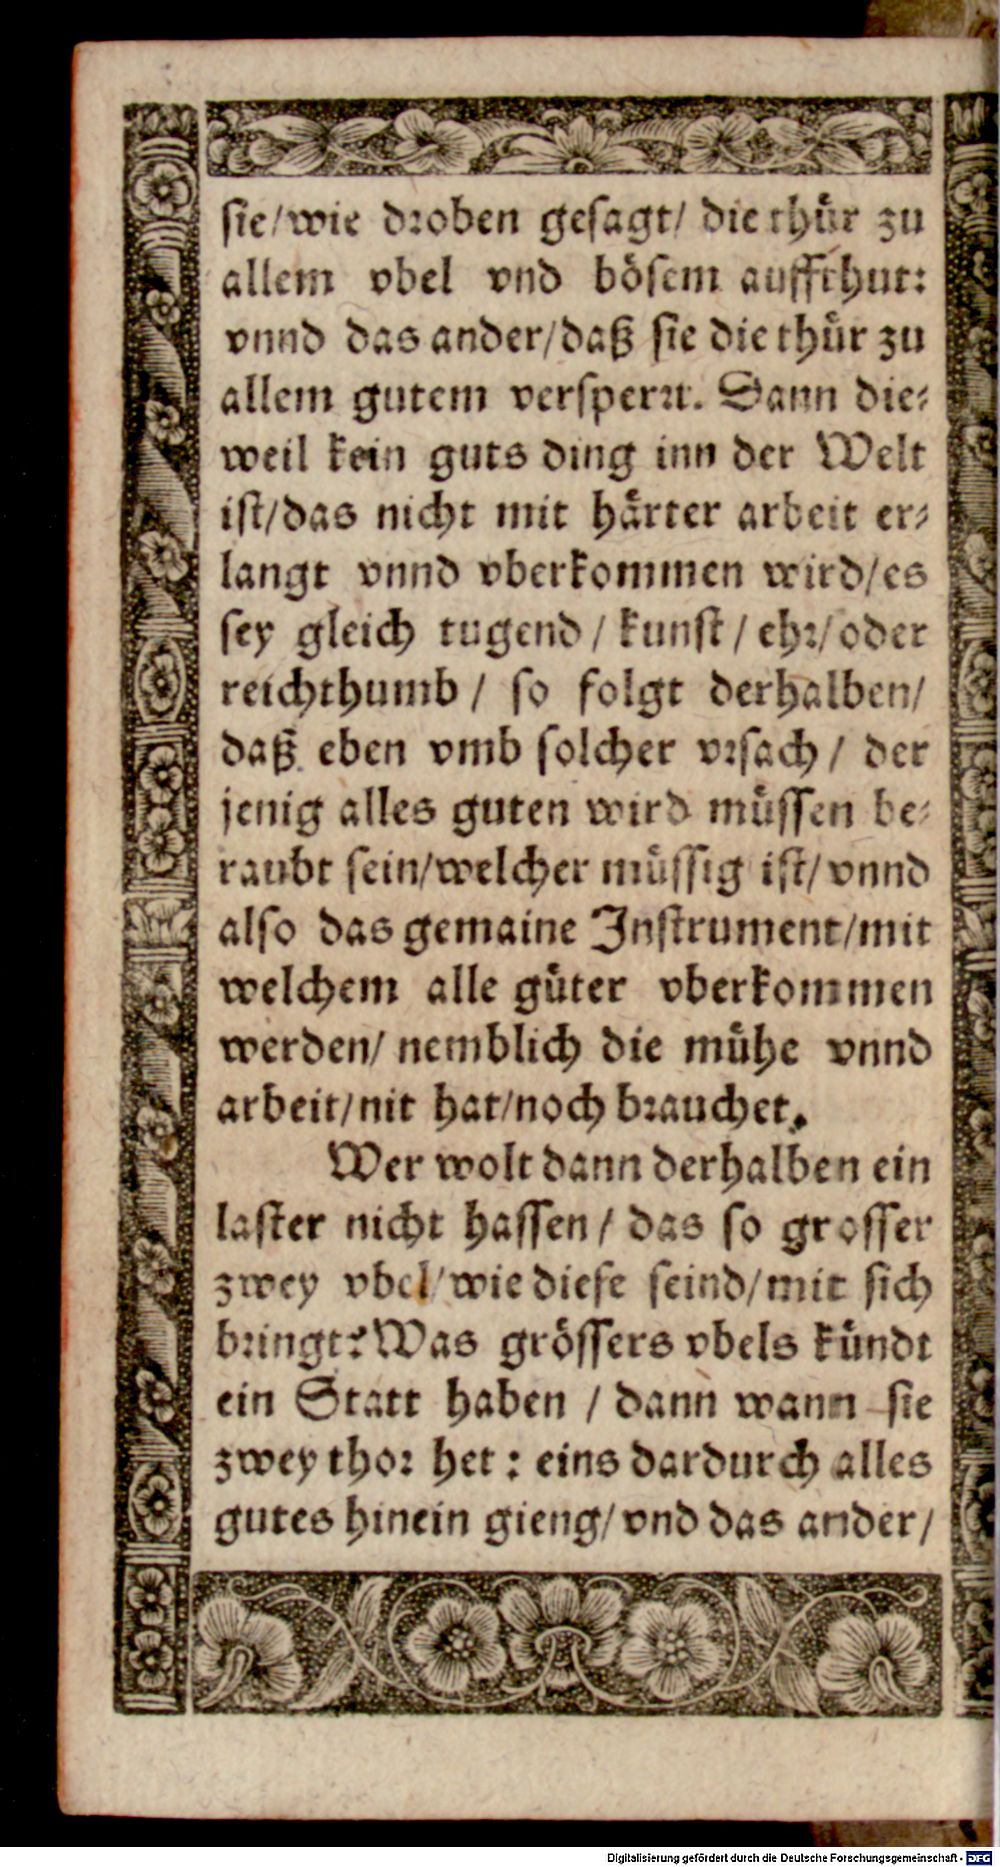 sie/wie droben gesagt/ die thür zu
allem vbel vnd bösem auffthut:
vnnd das ander/daß sie die thür zu
allem gutem versperrt. Dann die⸗
weil kein guts ding inn der Welt
ist/das nicht mit härter arbeit er⸗
langt vnnd vberkommen wird/es
sey gleich tugend / kunst / ehr/oder
reichthumb / so folgt derhalben/
daß eben vmb solcher vrsach / der
jenig alles guten wird müssen be⸗
raubt sein/welcher müssig ist/ vnnd
also das gemaine Instrument/mit
welchem alle güter vberkommen
werden/ nemblich die mühe vnnd
arbeit/nit hat/noch brauchet.
Wer wolt dann derhalben ein
laster nicht hassen / das so grosser
zwey vbel/wie diese seind/mit sich
bringt? Was grössers vbels kündt
ein Statt haben / dann wann sie
zwey thor het : eins dardurch alles
gutes hinein gieng/ vnd das ander/
Digitalisierung gefördert durch die Deutsche Forschungsgemeinschaft - DFG